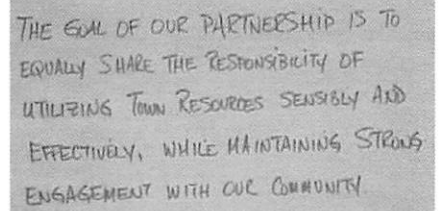 THE GOAL OF OUR PARTNERSHIP IS TO
EQUALLY SHARE THE RESPONSIBILITY OF
UTILIZING TOWN RESOURCES SENSIBLY AND
EFFECTIVELY, WHILE MAINTAINING STRONG
ENGAGEMENT WITH OUR COMMUNITY.